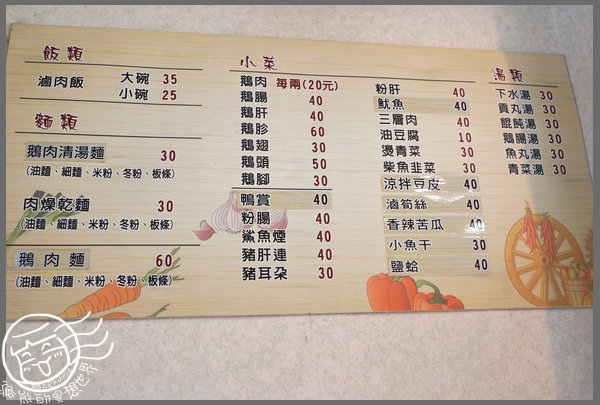 飯類
滷肉飯
大碗 35
小碗 25
麵類
鵝肉清湯麵 30
(油麵、細麵、米粉、冬粉、板條)
肉燥乾麵 30
(油麵、細麵、米粉、冬粉、板條)
鵝肉麵 60
(油麵、細麵、米粉、冬粉、板條)
小菜
鵝肉 每兩(20元)
鵝腸 40
鵝肝 40
鵝胗 60
鵝翅 30
鵝頭 50
鵝腳 30
鴨賞 40
粉腸 40
鯊魚煙 40
豬肝連 40
豬耳朵 30
粉肝 40
魷魚 40
三層肉 40
油豆腐 10
燙青菜 30
柴魚韭菜 30
涼拌豆皮 40
滷筍絲 40
香辣苦瓜 40
小魚干 30
鹽蛤 40
湯類
下水湯 30
貢丸湯 30
餛飩湯 30
鵝腸湯 30
魚丸湯 30
青菜湯 30
瘋熊的冥想世界